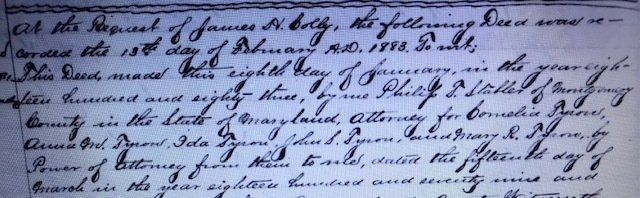 At the Request of James H. Bolly, the following Deed was re-
corded the 13th day of February A.D. 1883. To wit;
This Deed, made this eighth day of January, in the year eigh-
teen hundred and eighty three, by me Philip T. Stabler of Montgomery
County in the State of Maryland, Attorney for Cornelia Tyson,
Anna M. Tyson, Ida Tyson, John S. Tyson, and Mary R. Tyson, by
Power of Attorney from them to me, dated the fifteenth day of
March in the year eighteen hundred and seventy nine and